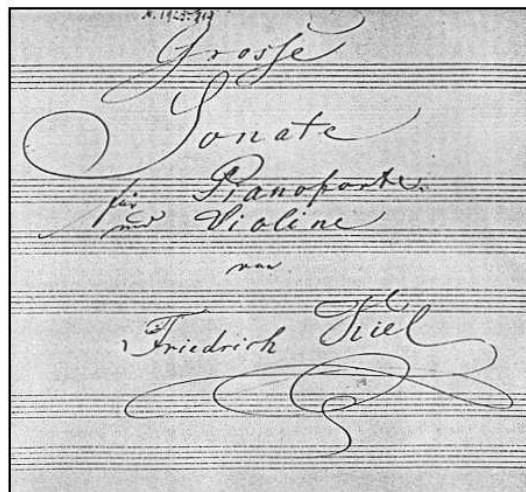 Grosse
Sonate
für Pianoforte.
und Violine
von
Friedrich Kiel